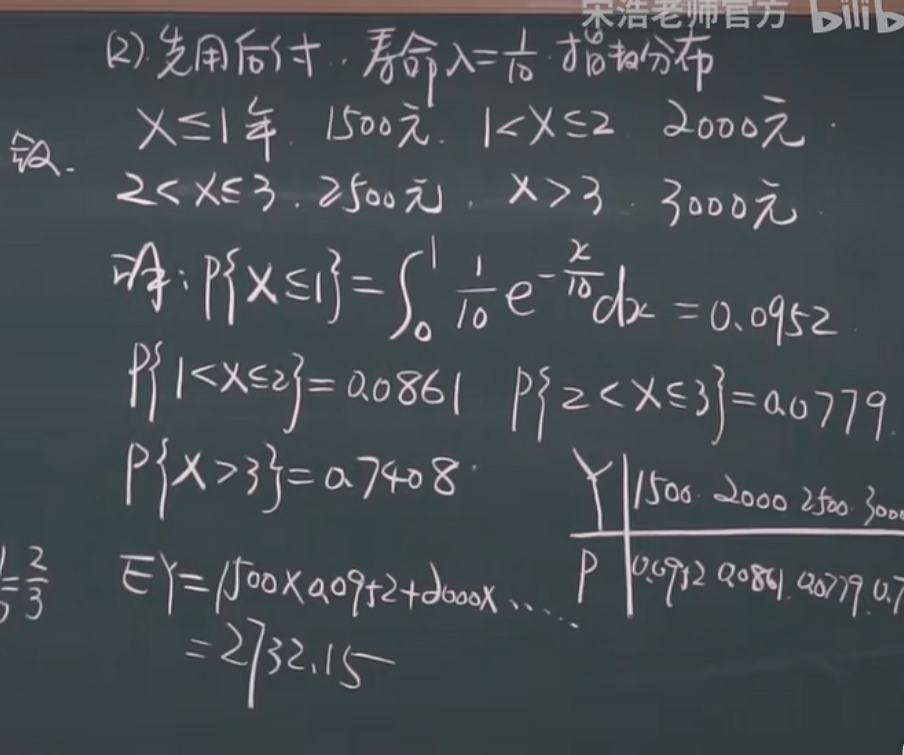 宋浩老师官方 bilib
(2).先用后付..寿命λ=1/10 指数分布
X≤1年. 1500元. 1<X≤2 2000元.
敛.
2<X≤3.2500元. X>3.3000元.
解:P{X≤1}=∫₀¹ 1/10 e^(-x/10) dx =0.0952.
P{1<X≤2}=0.0861 P{2<X≤3}=0.0779.
P{X>3}=0.7408.
Y 1500. 2000 2500. 3000
P 0.0952 0.0861. 0.0779 0.7
=2/3
EY=1500×0.0952+2000×.....
=2732.15